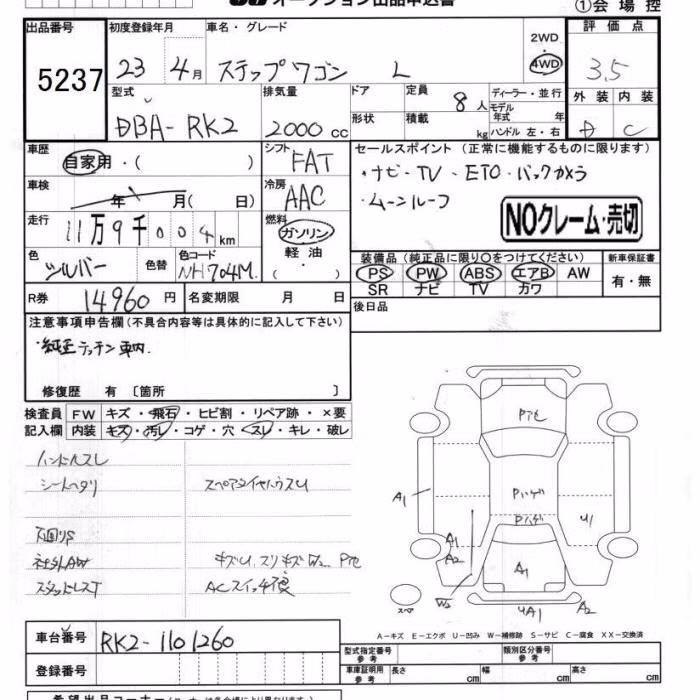 オークション出品申込書 ①会場控
出品番号 初度登録年月 車名・グレード 2WD 評価点
5237 23 4月 ステップワゴン L 4WD 3.5
型式 排気量 ドア 定員 8人 ディーラー・並行 外装 内装
DBA-RK2 2000cc 形状 積載 kg モデル年式 年 ハンドル 左・右 D C
車歴 自家用・( ) シフト FAT セールスポイント (正常に機能するものに限ります)
車検 年 月( 日) 冷房 AAC ・ナビ・TV・ETC・バックカメラ
・ムーンルーフ
走行 11万9千004km 燃料 ガソリン NOクレーム・売切
軽油
・( )
色 シルバー 色替 色コード NH704M 装備品 (純正品に限り〇をつけてください) 新車保証書
PS PW ABS エアB AW 有・無
SR ナビ TV カワ
R券 14960円 名変期限 月 日 後日品
注意事項申告欄 (不具合内容等は具体的に記入して下さい)
・純正テッチン車内.
修復歴 有 〔箇所 〕
検査員 FW キズ・飛石・ヒビ割・リペア跡・×要
記入欄 内装 キズ・汚レ・コゲ・穴・スレ・キレ・破レ
ハンドルスレ
シートヘタリ スペアタイヤハウスU
下廻りS
社外AW キズU.スリキズW2 P他
スタッドレスT ACスイッチ不良
P他
Pハゲ
Pハゲ
A1
U1
A1
A2
A1
W2
スペア UA1 A2
A-キズ E-エクボ U-凹み W-補修跡 S-サビ C-腐食 XX-交換済
車台番号 RK2-1101260 型式指定番号 参考 類別区分番号 参考
登録番号 車庫証明用 参考 長さ cm 幅 cm 高さ cm
希望出品コーナー